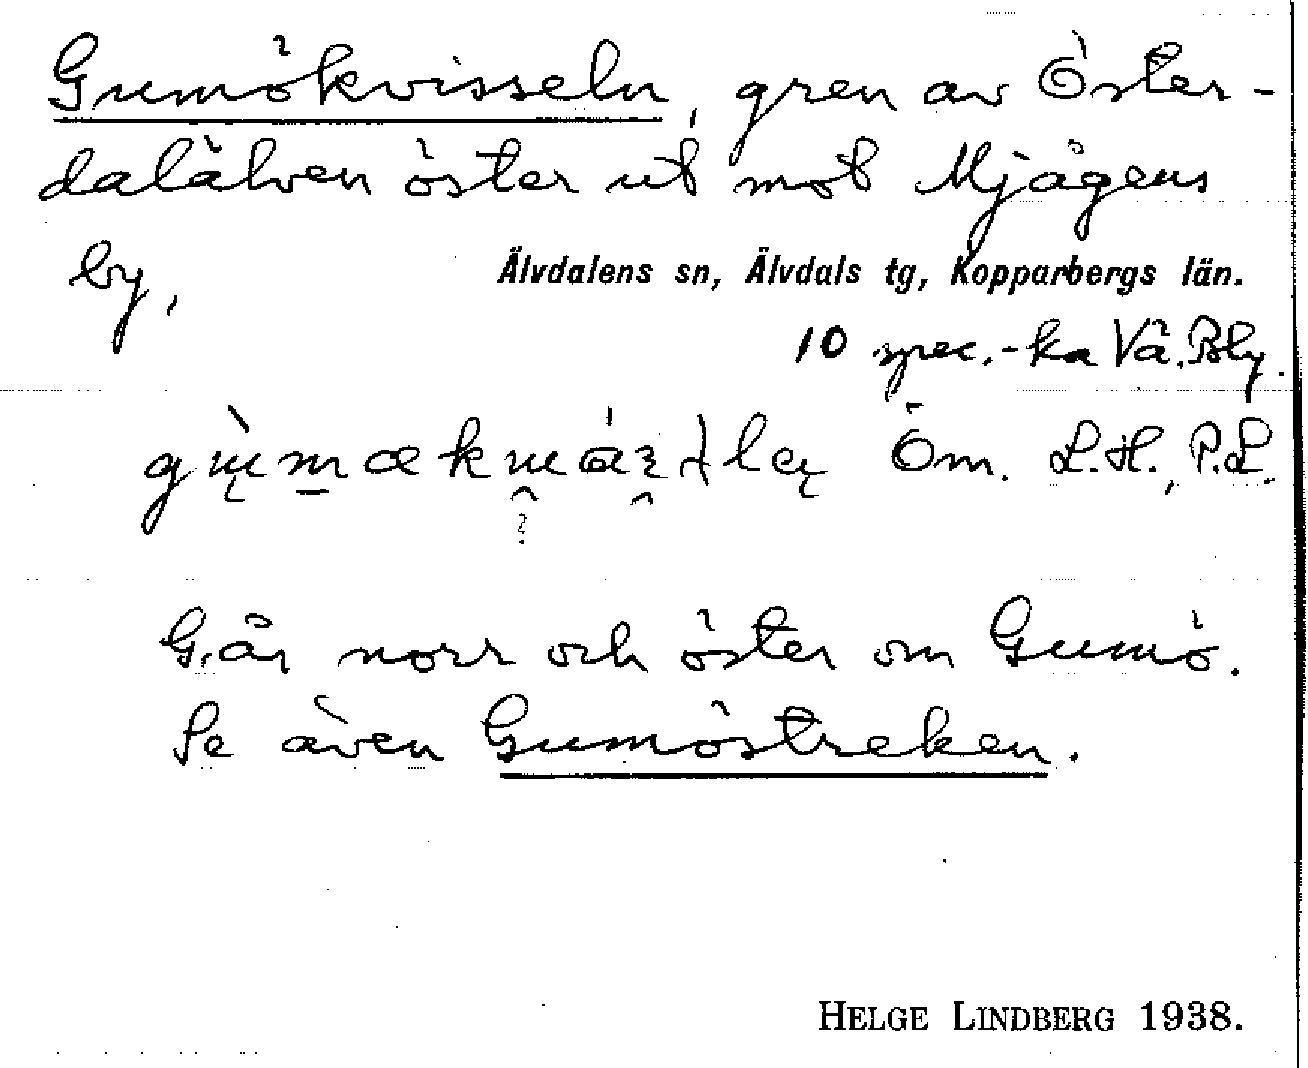 Gumökvisseln, gren av Öster-
dalälven öster ut mot Mjågens
by,
Älvdalens sn, Älvdals tg, Kopparbergs län.
10 spec.-ka Vå. Bly.
Öm. L.H., P.L.
Går norr och öster om Gumö.
Se även Gumöstreken.
HELGE LINDBERG 1938.